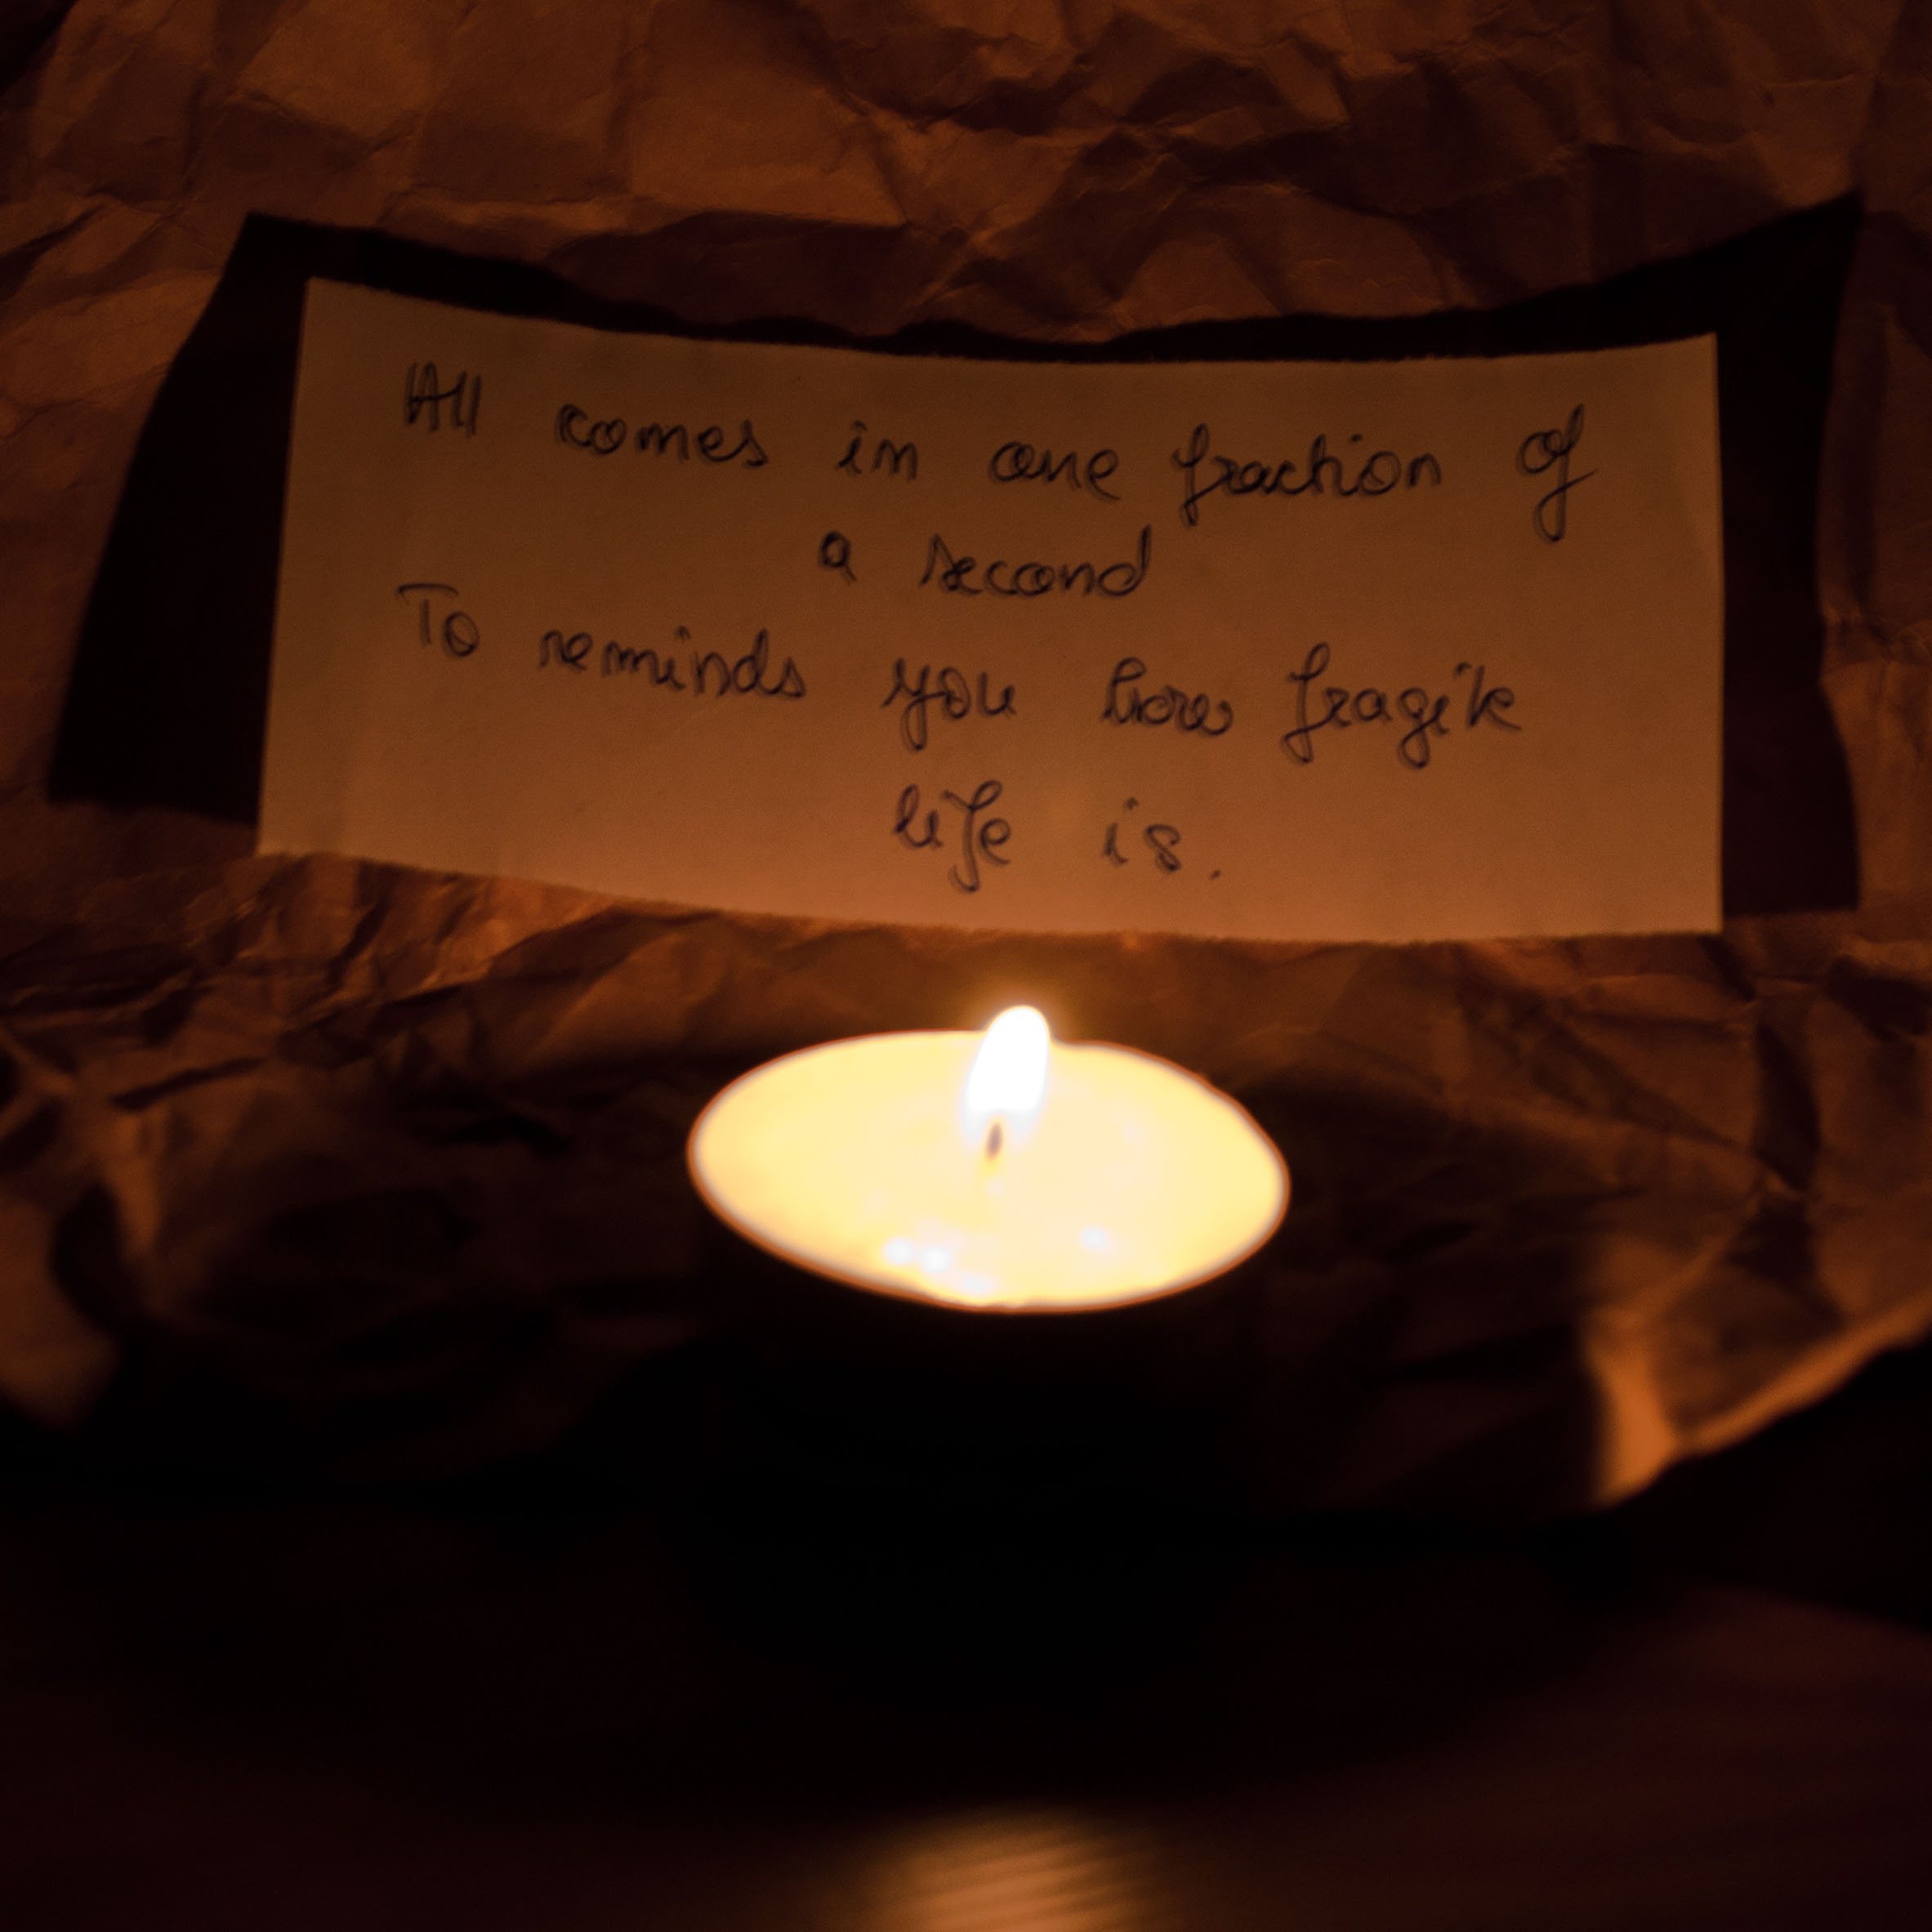 All comes in one fraction of
a second
To reminds you how fragile
life is.